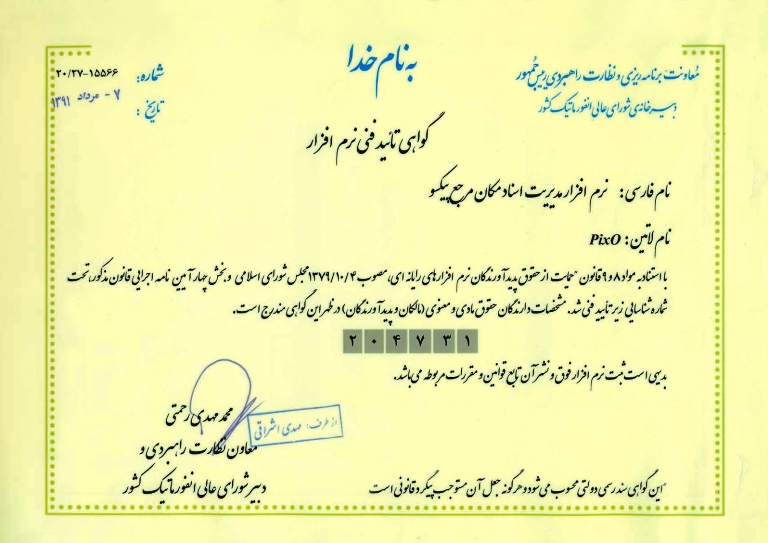 به نام خدا
معاونت برنامه ریزی و نظارت راهبردی رییس جمهور
دبیرخانه‌ی شورای عالی انفورماتیک کشور
شماره: ۲۰/۲۷-۱۵۵۶۶
تاریخ: ۷ - مرداد ۱۳۹۱
گواهی تائید فنی نرم افزار
نام فارسی: نرم افزار مدیریت اسناد مکان مرجع پیکسو
نام لاتین: PixO
با استناد به مواد ۸ و ۹ قانون "حمایت از حقوق پدیدآورندگان نرم افزارهای رایانه ای، مصوب ۱۳۷۹/۱۰/۴ مجلس شورای اسلامی و بخش چهار آیین نامه اجرایی قانون مذکور، تحت
شماره شناسایی زیر تأیید فنی شد. مشخصات دارندگان حقوق مادی و معنوی (مالکان و پدیدآورندگان) در ظهر این گواهی مندرج است.
۲۰۴۷۳۱
بدیهی است ثبت نرم افزار فوق و نشر آن تابع قوانین و مقررات مربوطه می‌باشد.
محمد مهدی رحمتی
از طرف: مهدی اشراقی
معاون نظارت راهبردی و
دبیر شورای عالی انفورماتیک کشور
"این گواهی سند رسمی دولتی محسوب می‌شود و هرگونه جعل آن مستوجب پیگرد قانونی است